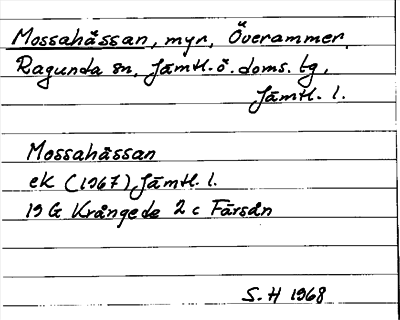 Mossahåssan, myr, Överammer,
Ragunda sn, Jämtl. ö. doms. tg,
Jämtl. l.
Mossahåssan
ek (1967) Jämtl. l.
19 G Krångede 2 c Färsån
S. H 1968